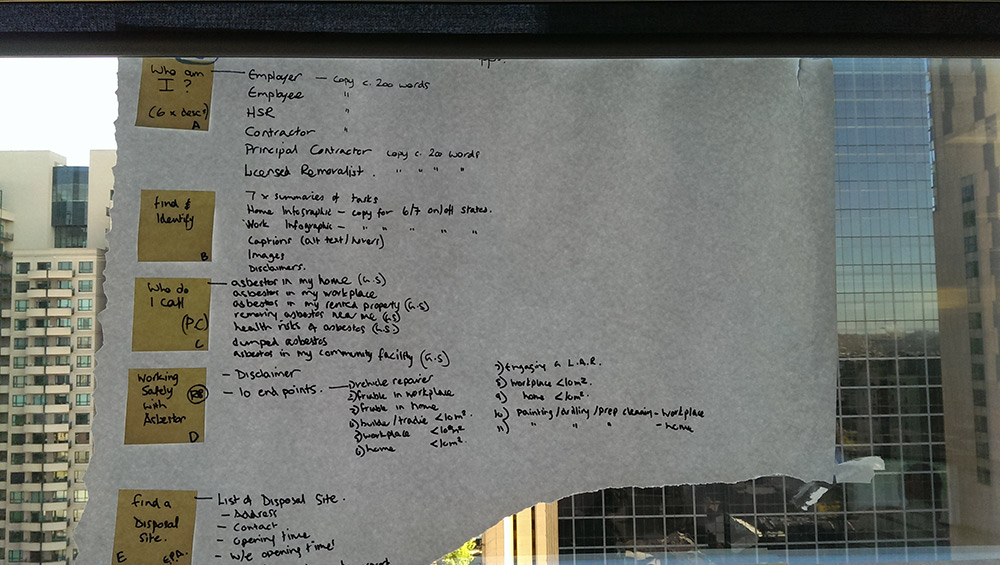 Who am
I ?
(6 x desc's)
A
Employer — copy c. 200 words
Employee "
HSR "
Contractor "
Principal Contractor copy c. 200 words
Licensed Removalist . " " " "
find &
Identify
B
7 x summaries of tasks
Home Infographic — copy for 6/7 on/off states.
Work Infographic — " " " " "
Captions (alt text/hovers)
Images
Disclaimers.
Who do
I call
(P.C)
C
asbestos in my home (G.S)
asbestos in my workplace
asbestos in my rented property (G.S)
removing asbestos near me (G.S)
health risks of asbestos (G.S)
dumped asbestos
asbestos in my community facility (G.S)
Working
Safely
with
Asbestos
D
— Disclaimer
— 10 end points.
1) vehicle repairer
2) friable in workplace
3) friable in home
4) builder/tradie <10m².
5) workplace <10m²
6) home <10m².
7) Engaging a L.A.R.
8) workplace <10m².
9) home <10m².
10) Painting/drilling/prep cleaning - workplace
11) " " " - home
find a
Disposal
Site.
E E.P.A.
List of Disposal Site.
— Address
— Contact
— Opening time
— W/e opening time!